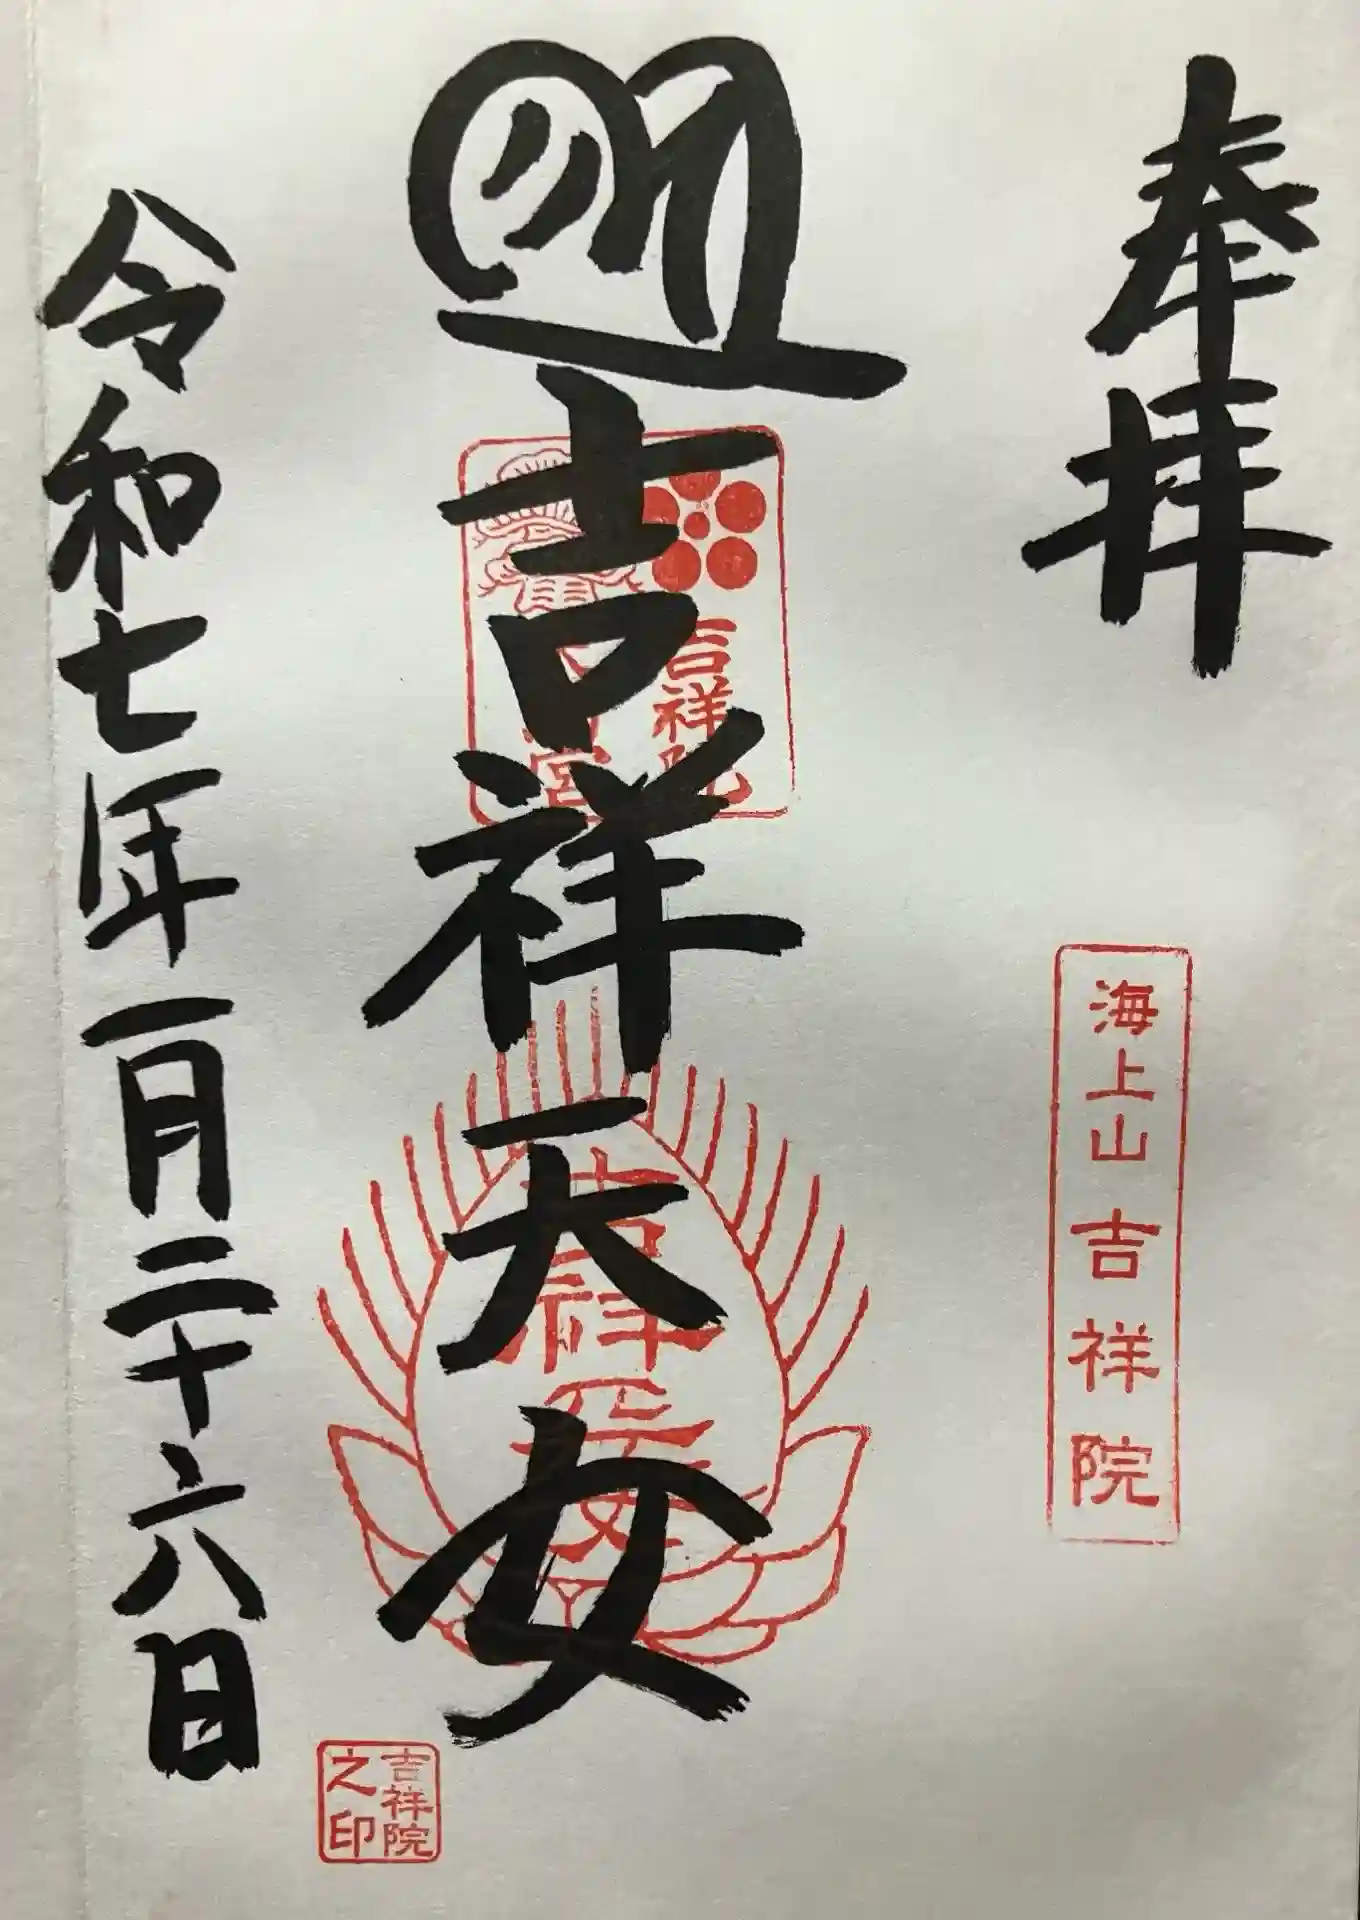 奉拝
海上山吉祥院
吉祥天女
吉祥院
宮
吉祥天女
令和七年一月二十六日
吉祥院
之印